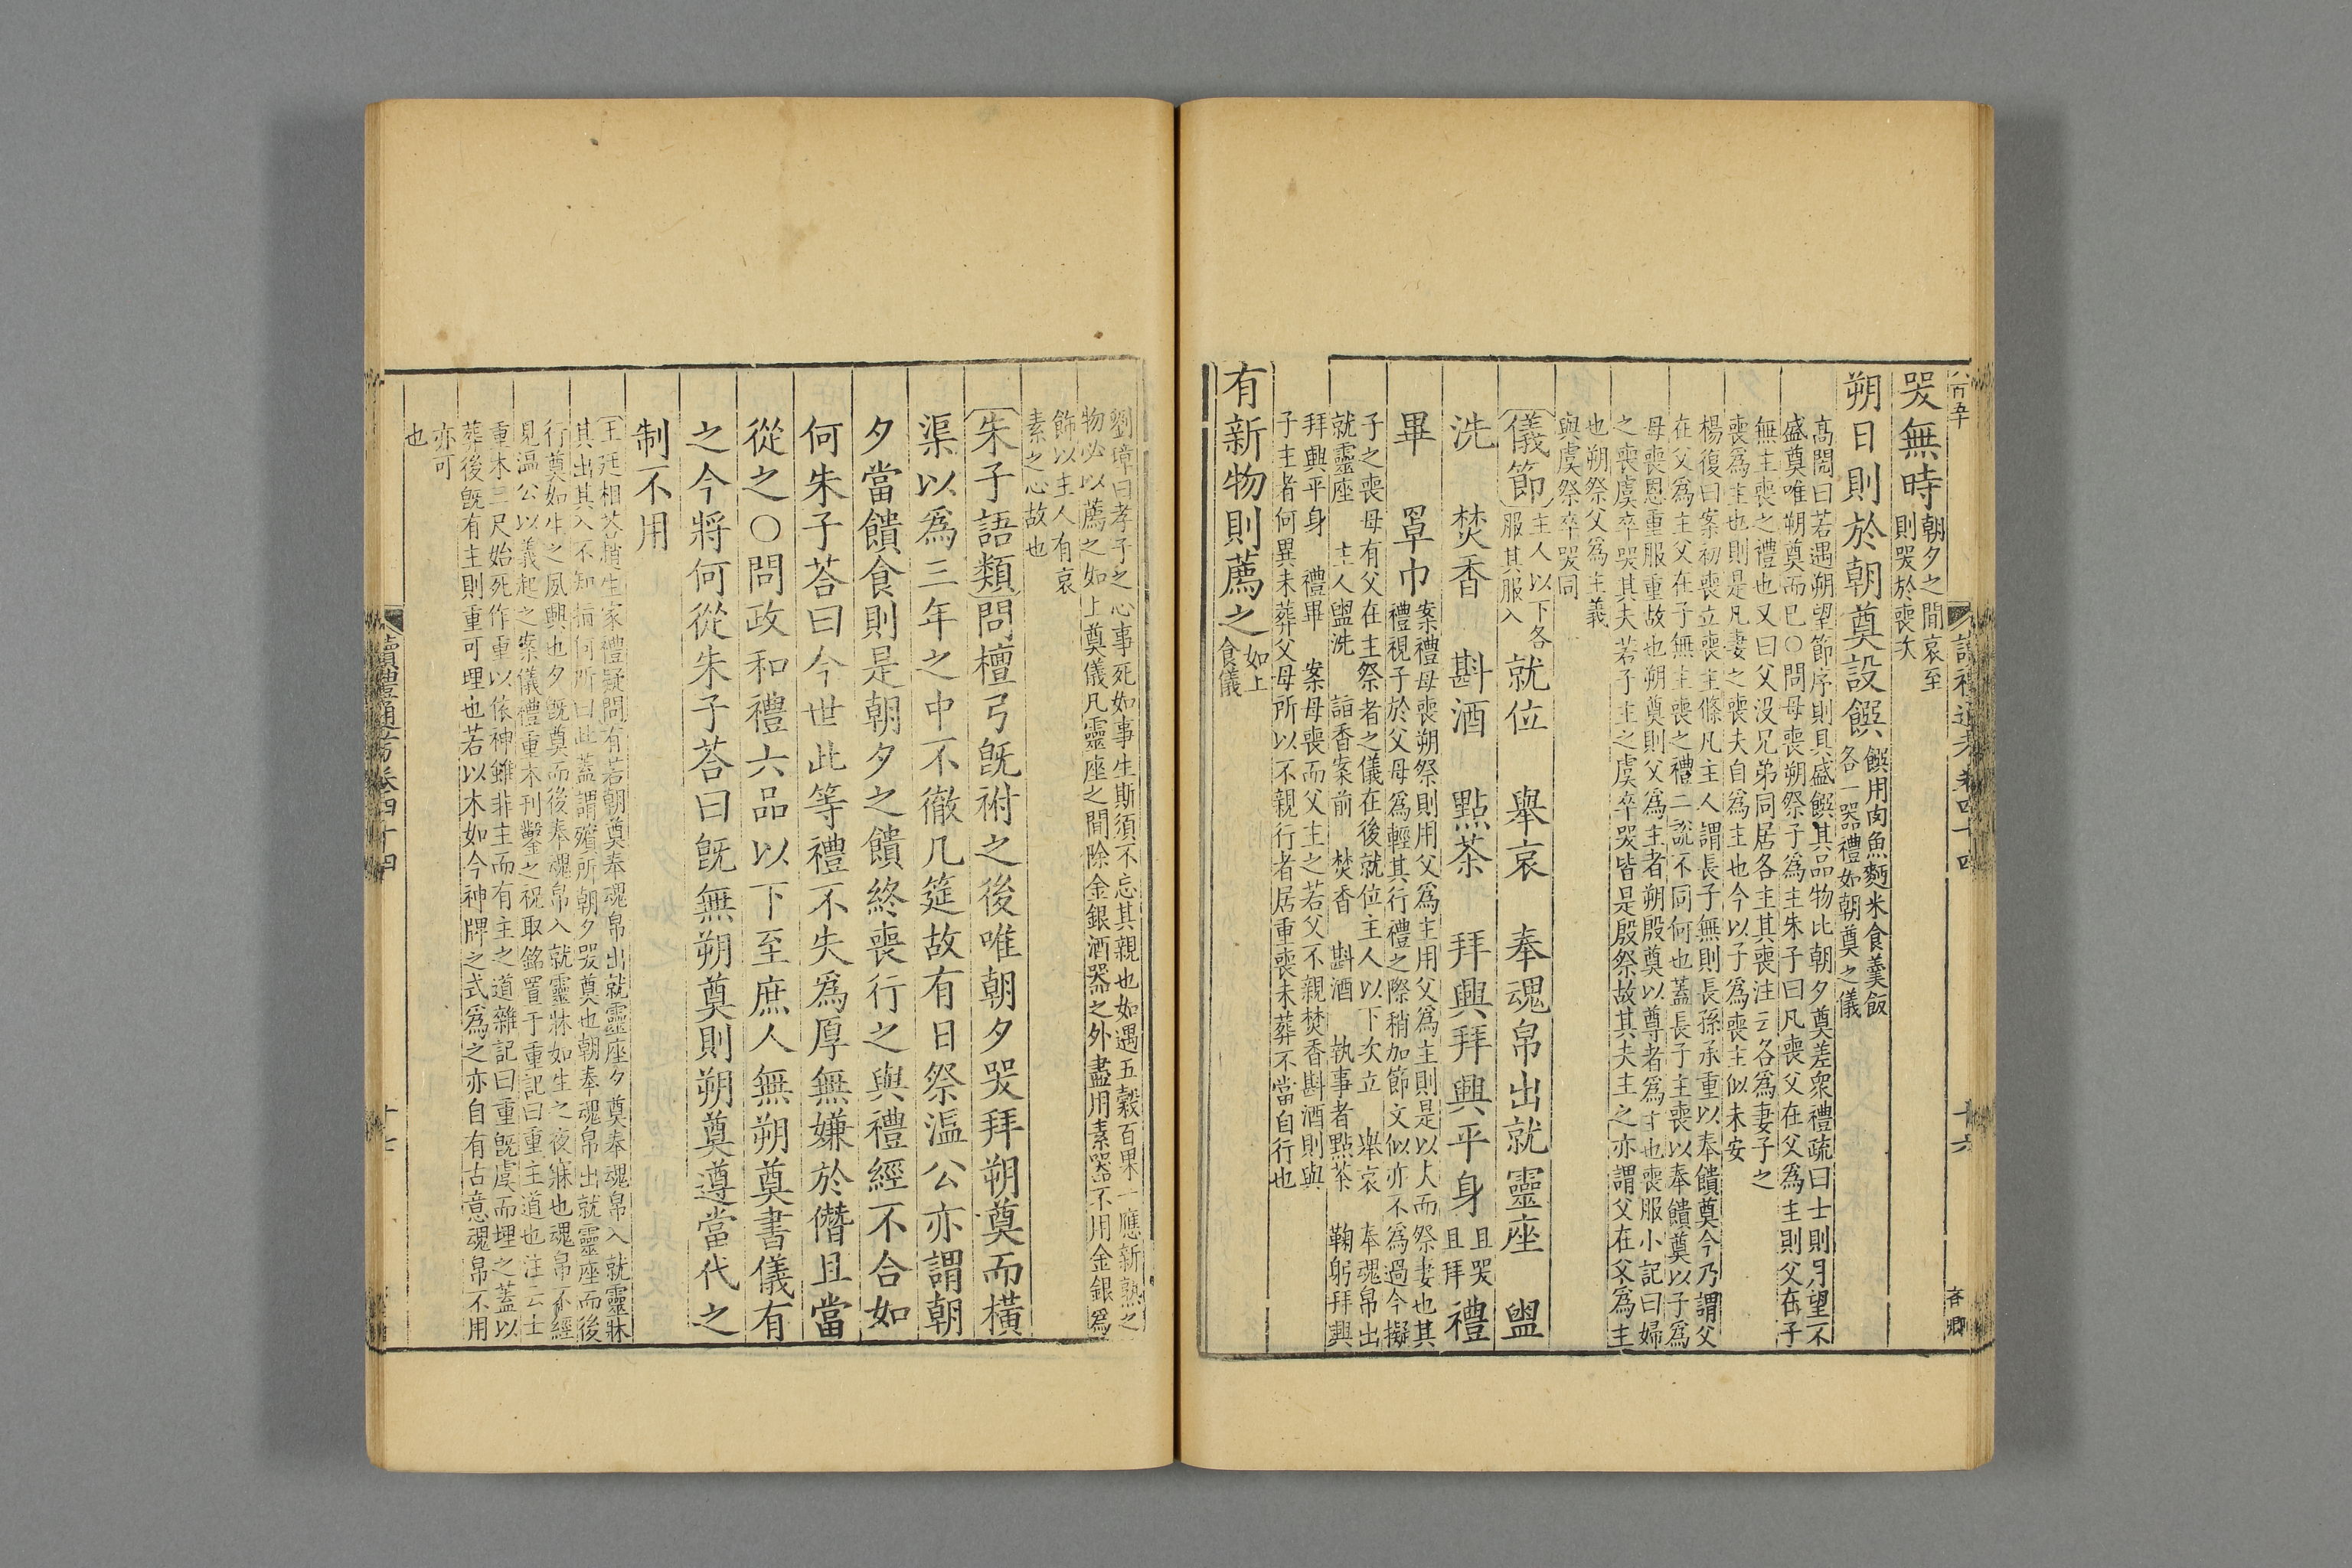 哭無時朝夕之間哀至
則哭於喪次
朔日則於朝奠設饌饌用肉魚麪米食羹飯
各一器禮如朝奠之儀
高閌曰若遇朔望節序則具盛饌其品物比朝夕奠差衆禮疏曰士則月望不
盛奠唯朔奠而已○問母喪朔祭子為主朱子曰凡喪父在父為主則父在子
無主喪之禮也又曰父没兄弟同居各主其喪注云各為妻子之
喪為主也則是凡妻之喪夫自為主也今以子為喪主似未安
楊復曰案初喪立喪主條凡主人謂長子無則長孫承重以奉饋奠今乃謂父
在父為主父在子無主喪之禮二説不同何也蓋長子主喪以奉饋奠以子為
母喪恩重服重故也朔奠則父為主者朔殷奠以尊者為主也喪服小記曰婦
之喪虞卒哭其夫若子主之虞卒哭皆是殷祭故其夫主之亦謂父在父為主
也朔祭父為主義
與虞祭卒哭同
儀節主人以下各
服其服入就位　舉哀　奉魂帛出就靈座　盥
洗　焚香　斟酒　點茶　拜興拜興平身且哭
且拜禮
畢　罩巾案禮母喪朔祭則用父為主用父為主則是以夫而祭妻也其
禮視子於父母為輕其行禮之際稍加節文似亦不為過今擬
子之喪母有父在主祭者之儀在後就位主人以下次立　舉哀　奉魂帛出
就靈座　主人盥洗　詣香案前　焚香　斟酒　執事者點茶　鞠躬拜興
拜興平身　禮畢　案母喪而父主之若父不親焚香斟酒則與
子主者何異未葬父母所以不親行者居重喪未葬不當自行也
有新物則薦之如上
食儀
劉璋曰孝子之心事死如事生斯須不忘其親也如遇五穀百果一應新熟之
物必以薦之如上奠儀凡靈座之間除金銀酒器之外盡用素器不用金銀為
飾以主人有哀
素之心故也
朱子語類問檀弓既祔之後唯朝夕哭拜朔奠而橫
渠以為三年之中不徹几筵故有日祭溫公亦謂朝
夕當饋食則是朝夕之饋終喪行之與禮經不合如
何朱子荅曰今世此等禮不失為厚無嫌於僭且當
從之○問政和禮六品以下至庶人無朔奠書儀有
之今將何從朱子荅曰既無朔奠則朔奠遵當代之
制不用
王廷相荅趙生家禮疑問有若朝奠奉魂帛出就靈座夕奠奉魂帛入就靈牀
其出其入不知指何所曰此蓋謂殯所朝夕哭奠也朝奉魂帛出就靈座而後
行奠如生之夙興也夕既奠而後奉魂帛入就靈牀如生之夜寐也魂帛不經
見溫公以義起之案儀禮重木刊鑿之祝取銘置于重記曰重主道也注云士
重木三尺始死作重以依神雖非主而有主之道雜記曰重既虞而埋之蓋以
葬後既有主則重可埋也若以木如今神牌之式為之亦自有古意魂帛不用
亦可
也
讀禮通考卷四十四